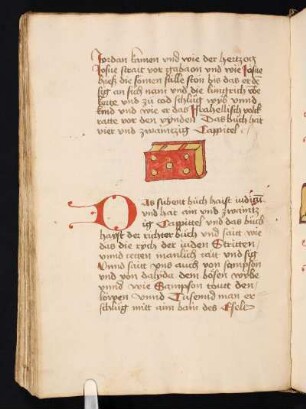 Jordan kamen vnd wie der hertzog
Josue strait vor gabaon vnd wie Josue
hieß die sonnen stille ston bis das er de
sig an sich nam vnd die küngrich zer
vnd zů tod schlůg wyb vnnd
kind vnd wie er das Israhelsch volck
ratte vor den vynden Das bůch hat
vier vnd zwaintzig Cappitel
Das subent bůch haist iudicū
vnd hat ain vnd zwaintz
ig Cappittel vnd das bůch
haist der richter bůch vnd sait wie
das die rych der iuden Stritten
vnnd retten manlich tatt vnd sig
Vnnd sait vns auch von sampson
vnd von dalida dem bösen wybe
vnnd wie Sampson tött den
löwen Vnnd Tusennd man er
schlůg mitt aim bain des Esels